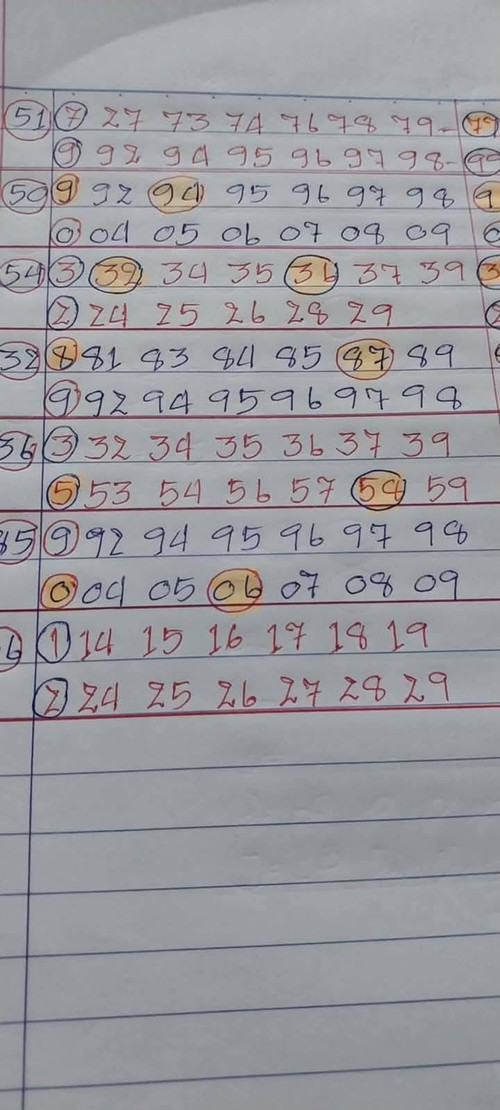 51 7 27 73 74 76 78 79- 79
9 92 94 95 96 97 98-
50 9 92 94 95 96 97 98 9
0 04 05 06 07 08 09
54 3 32 34 35 36 37 39 3
2 24 25 26 28 29
32 8 81 83 84 85 87 89
9 92 94 95 96 97 98
36 3 32 34 35 36 37 39
5 53 54 56 57 58 59
85 9 92 94 95 96 97 98
0 04 05 06 07 08 09
6 1 14 15 16 17 18 19
2 24 25 26 27 28 29